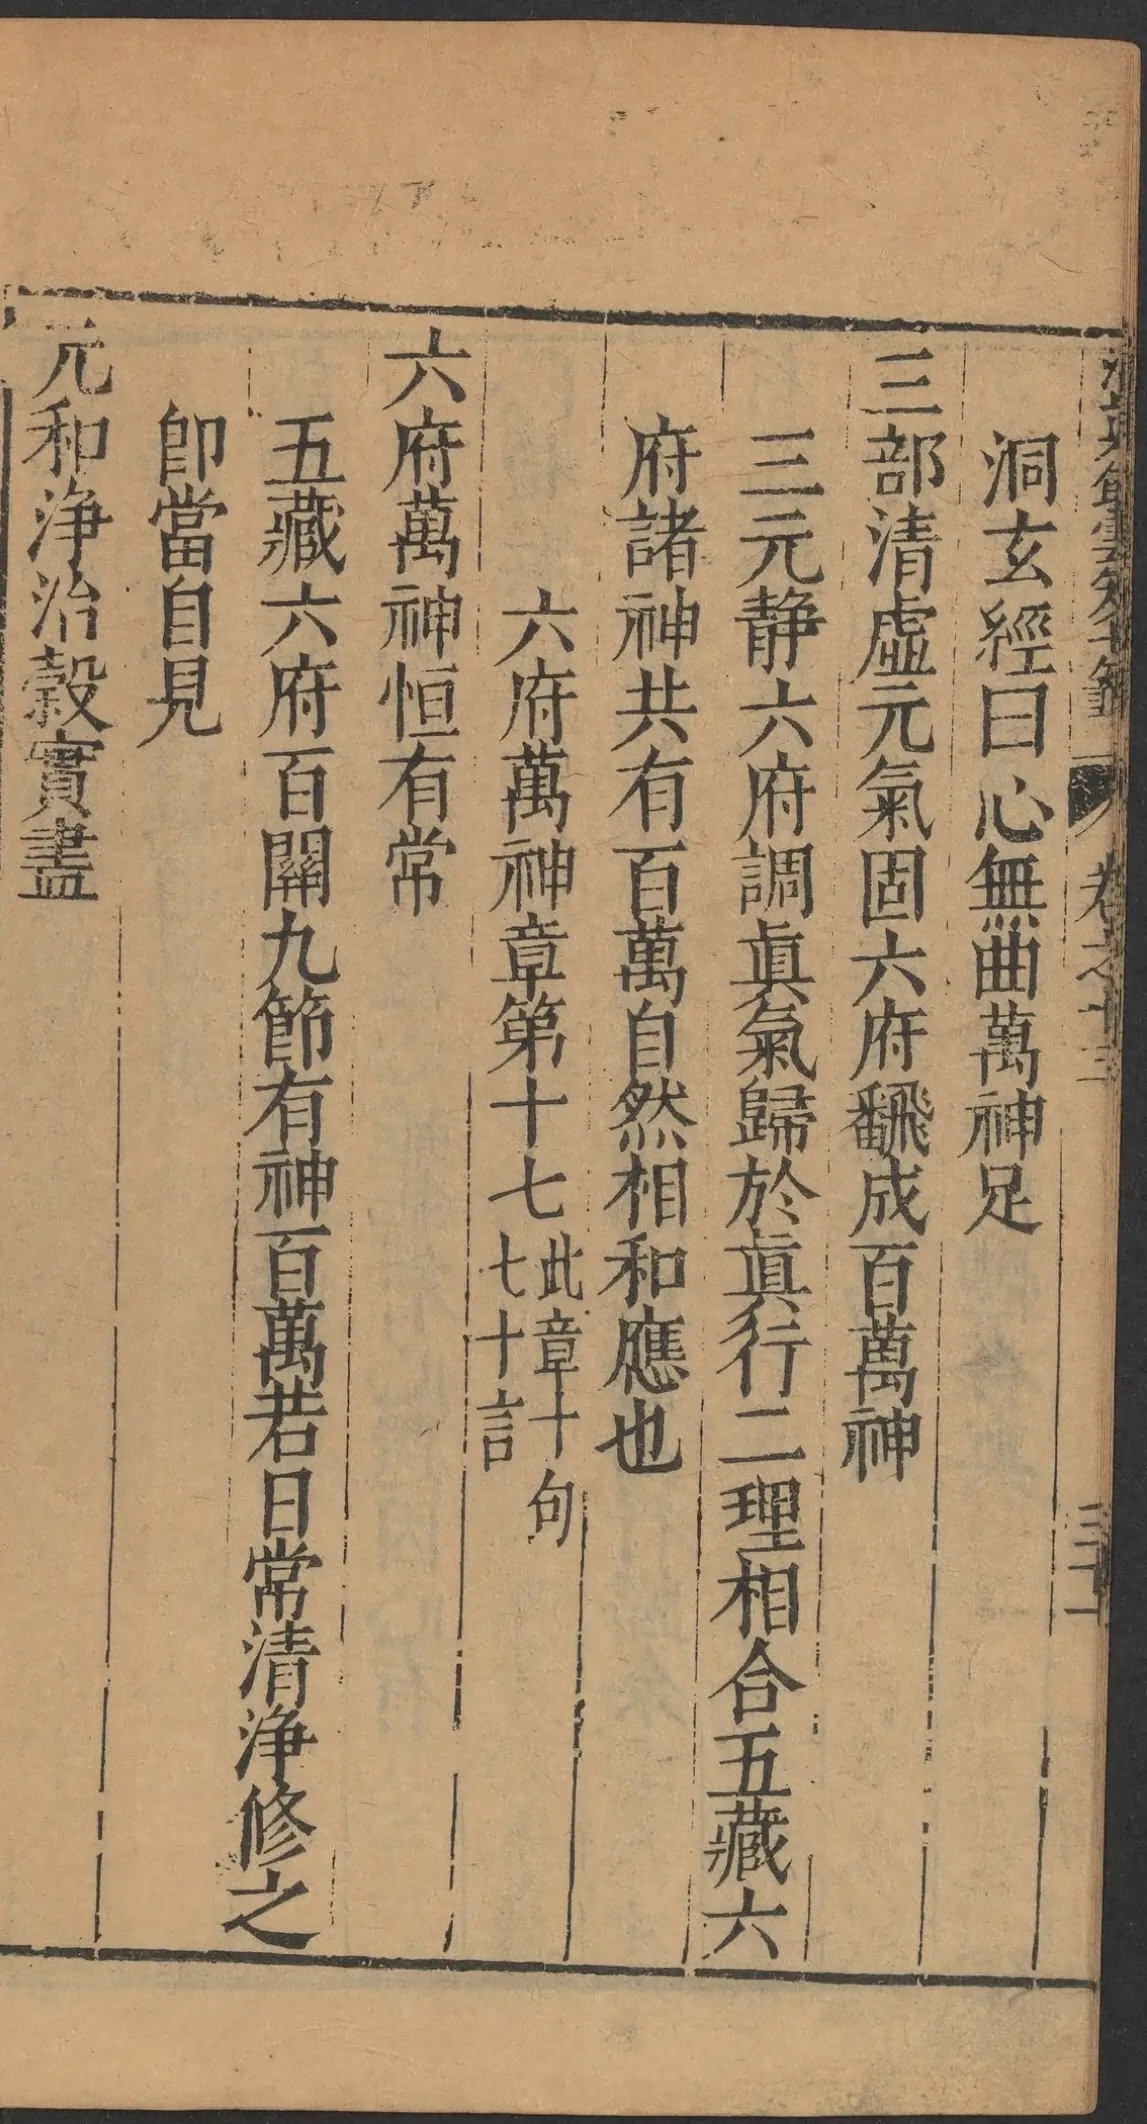 卷之十三
三十一
洞玄經曰心無曲萬神足
三部清虛元氣固六府飜成百萬神
三元静六府調眞氣歸於眞行二理相合五藏六
府諸神共有百萬自然相和應也
六府萬神章第十七
此章十句
七十言
六府萬神恒有常
五藏六府百關九節有神百萬若日常清淨修之
卽當自見
元和淨治榖實盡